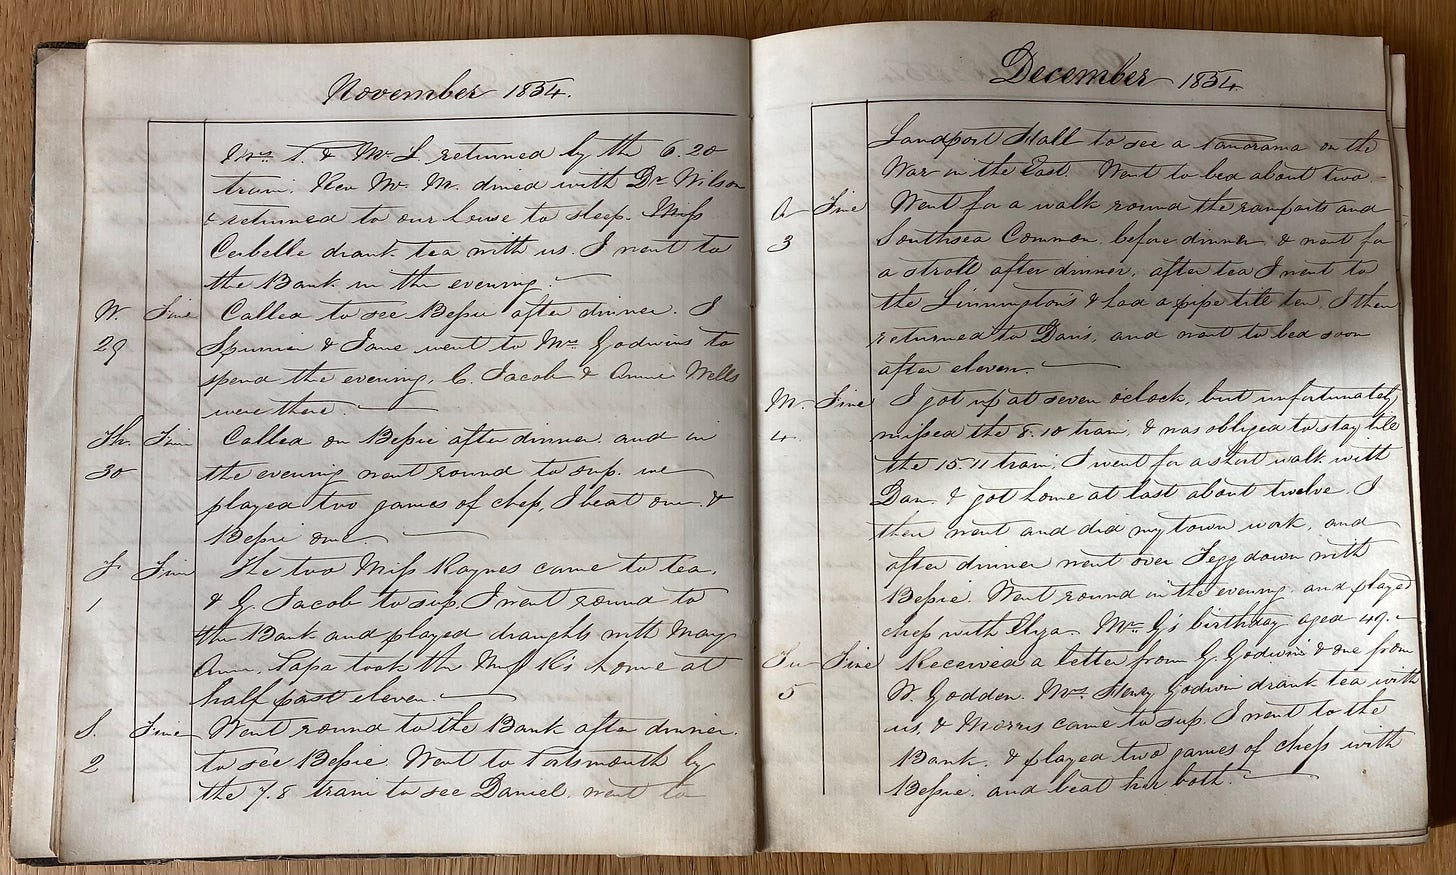 November 1854.
Mrs. S. & Mr. L returned by the 6.20
train. Rev Mr. M. dined with Dr. Wilson
& returned to our house to sleep. Miss
drank tea with us. I went to
the Bank in the evening.
W. Fine Called to see Bessie after dinner. I
29 & Jane went to Mrs. Godwins to
spend the evening. C. Jacob & Annie Wells
were there.
Th. Fine Called on Bessie after dinner, and in
30 the evening went round to sup. we
played two games of chess, I beat one &
Bessie one.
F. Fine The two Miss Raynes came to tea,
1 & G. Jacob to sup. I went round to
the Bank and played draughts with Mary
Ann. Papa took the Miss R's home at
half past eleven.
S. Fine Went round to the Bank after dinner.
2 to see Bessie. Went to Portsmouth by
the 7.8 train to see Daniel. went to
December 1854
Landport Hall to see a Panorama on the
War in the East. Went to bed about two.
Fine Went for a walk round the ramparts and
3 Southsea Common, before dinner, & went for
a stroll after dinner, after tea I went to
the & had a pipe till ten, I then
returned to Dan's, and went to bed soon
after eleven.
M. Fine I got up at seven oclock, but unfortunately
4 missed the 8.10 train, & was obliged to stay till
the 15.11 train, I went for a short walk with
Dan, & got home at last about twelve. I
then went and did my town work, and
after dinner went over Teggdown with
Bessie. Went round in the evening, and played
chess with Eliza. Mrs. G's birthday aged 49.
Tu Fine Received a letter from G. Godwin & one from
5 W. Godden. Mrs. Henry Godwin drank tea with
us, & Morris came to sup. I went to the
Bank, & played two games of chess with
Bessie, and beat her both.